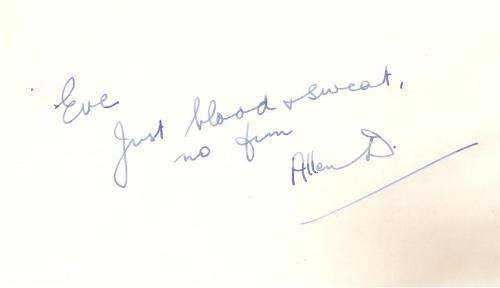 Eve
Just blood & sweat,
no fun
Allen D.